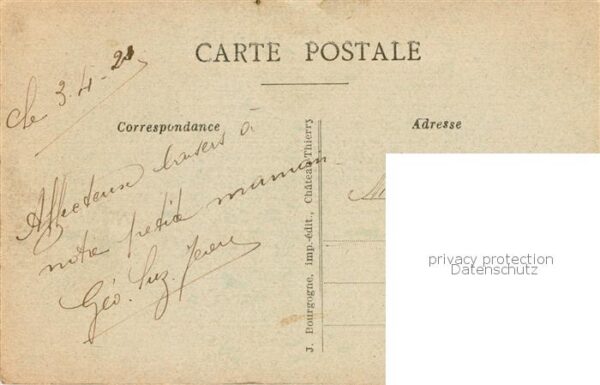 CARTE POSTALE
le 3.4-21
Correspondance
Adresse
Affectueux baisers à
notre petite maman
Géo. Suz. Jean
J. Bourgogne, imp.-édit., Château-Thierry
privacy protection
Datenschutz